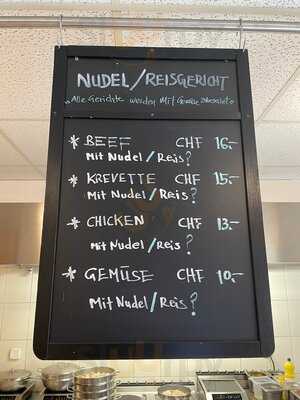 NUDEL/REISGERICHT
"Alle Gerichte werden Mit Gemüse
* BEEF CHF 16.-
Mit Nudel/Reis?
* KREVETTE CHF 15.-
Mit Nudel/Reis?
* CHICKEN CHF 13.-
Mit Nudel/Reis?
* GEMÜSE CHF 10.-
Mit Nudel/Reis?